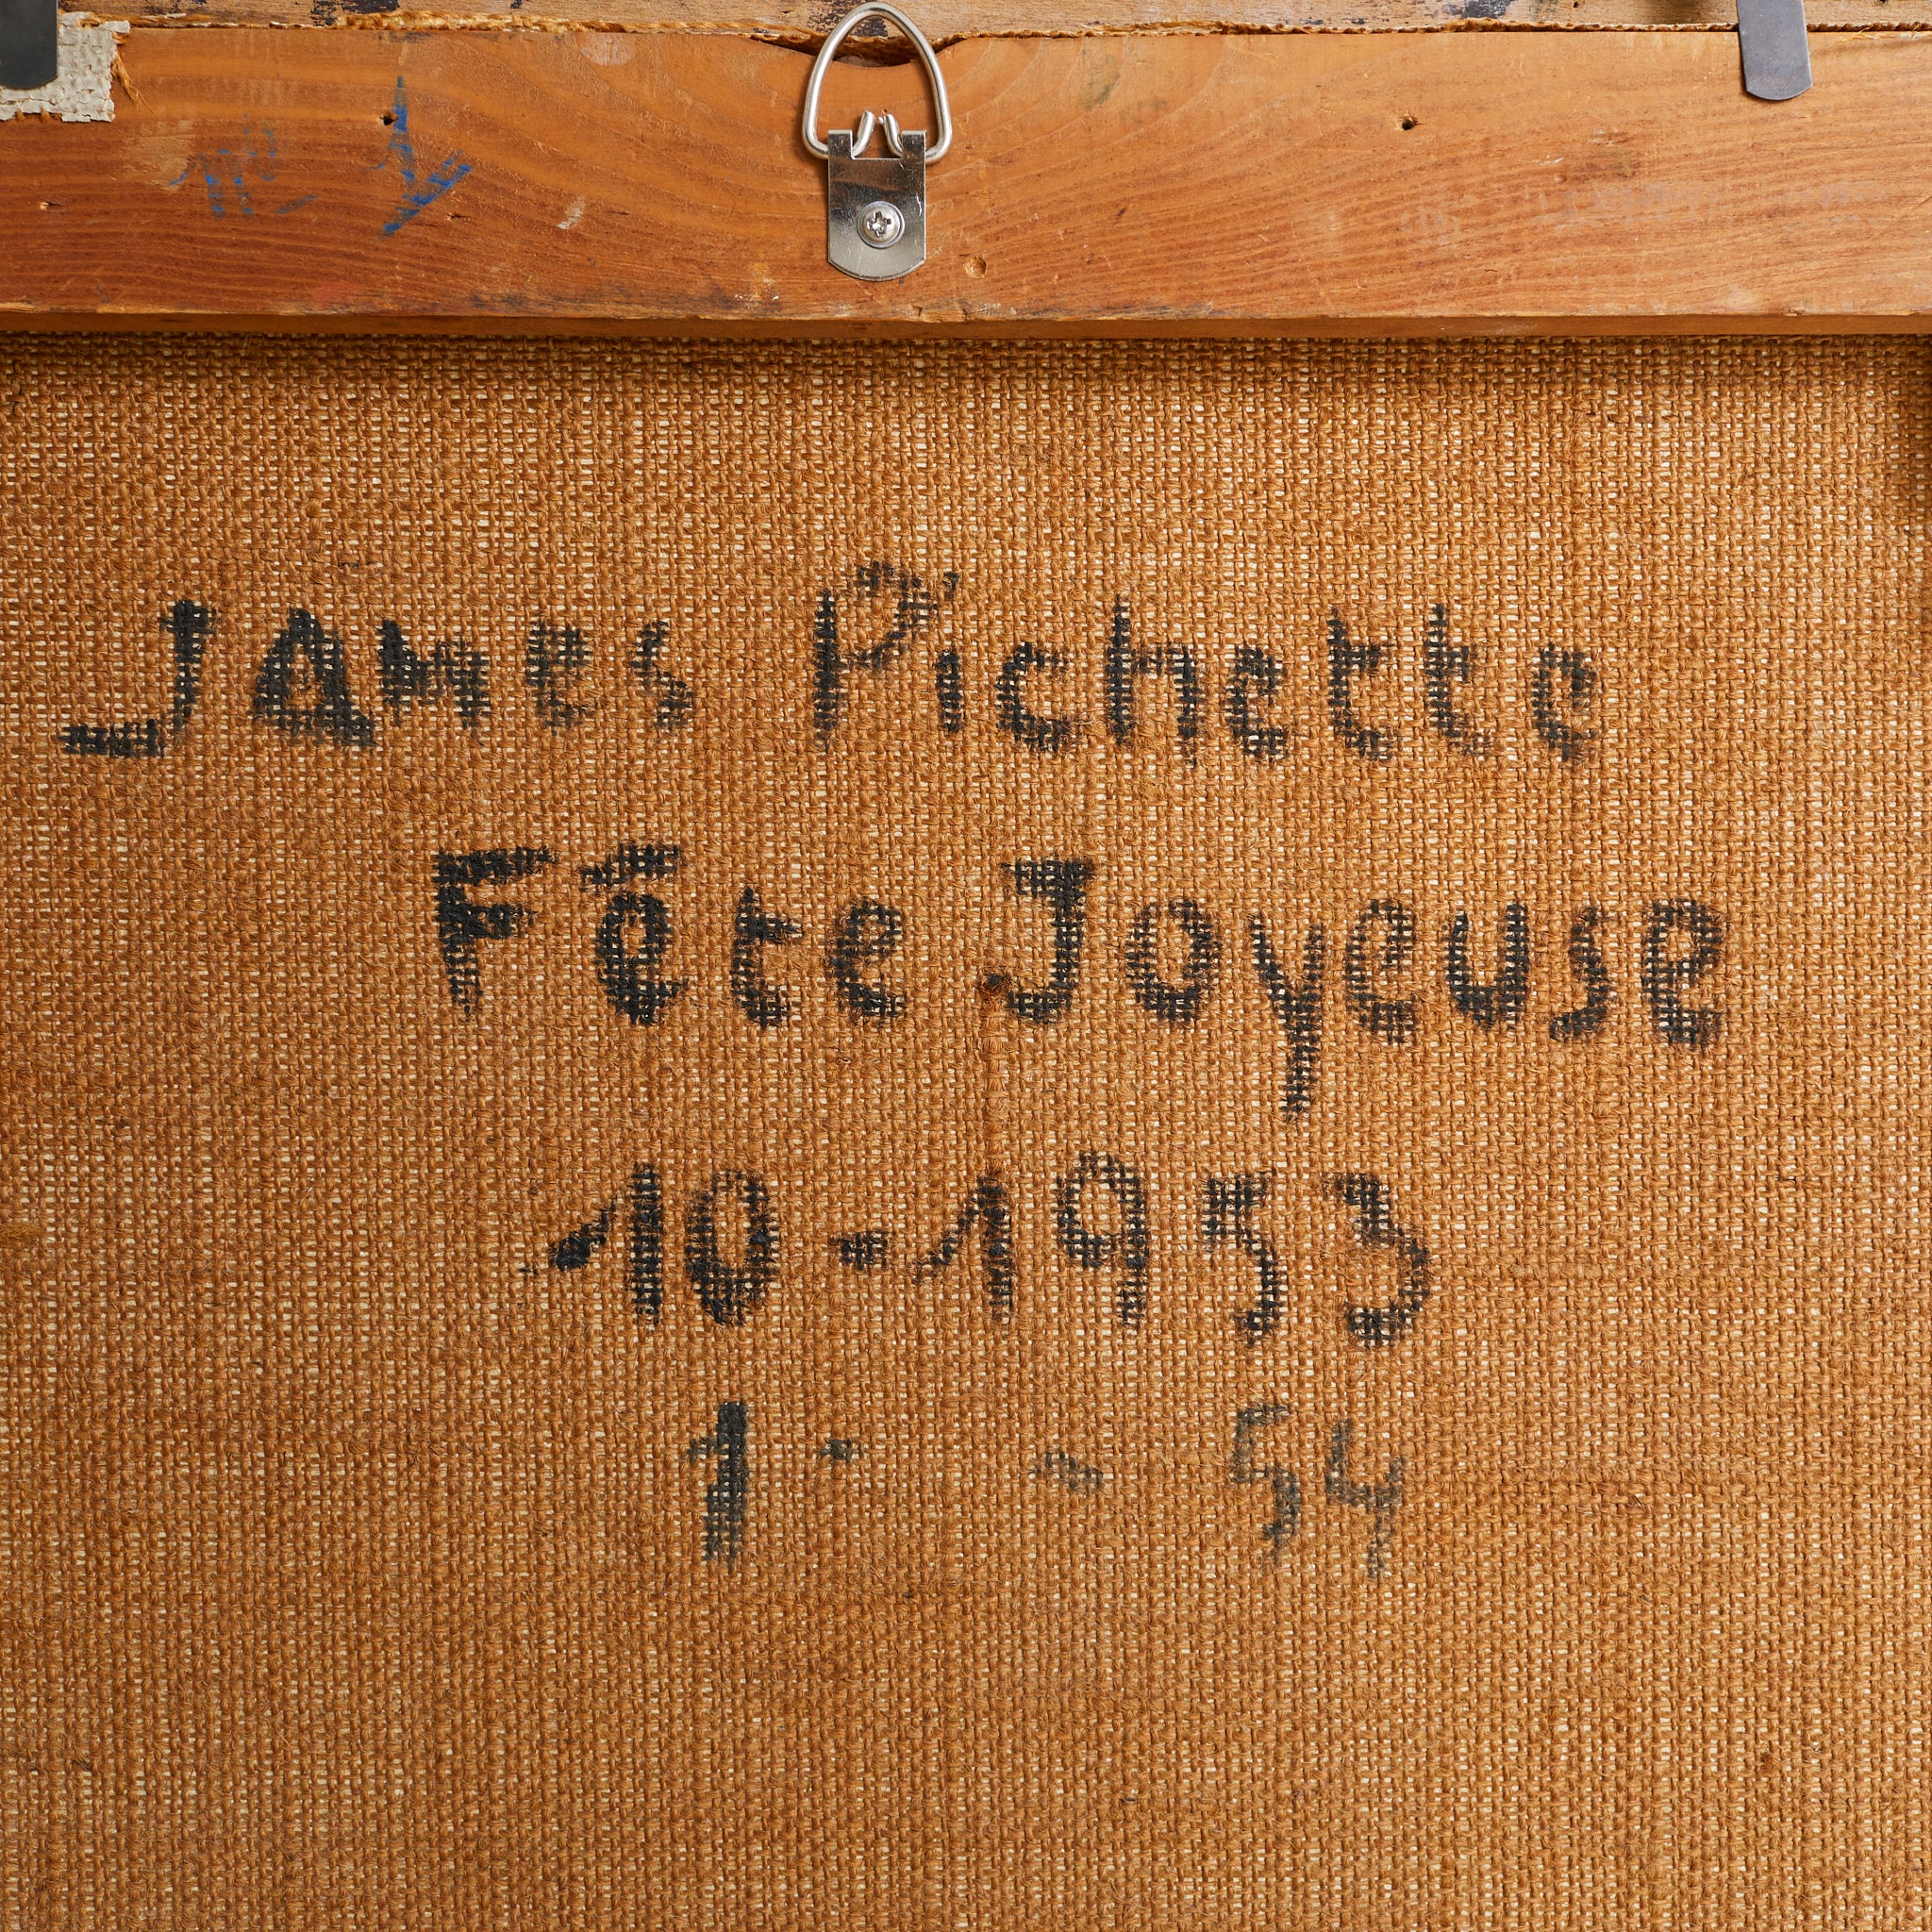 James Pichette
Fête Joyeuse
10-1953
1 - - 54